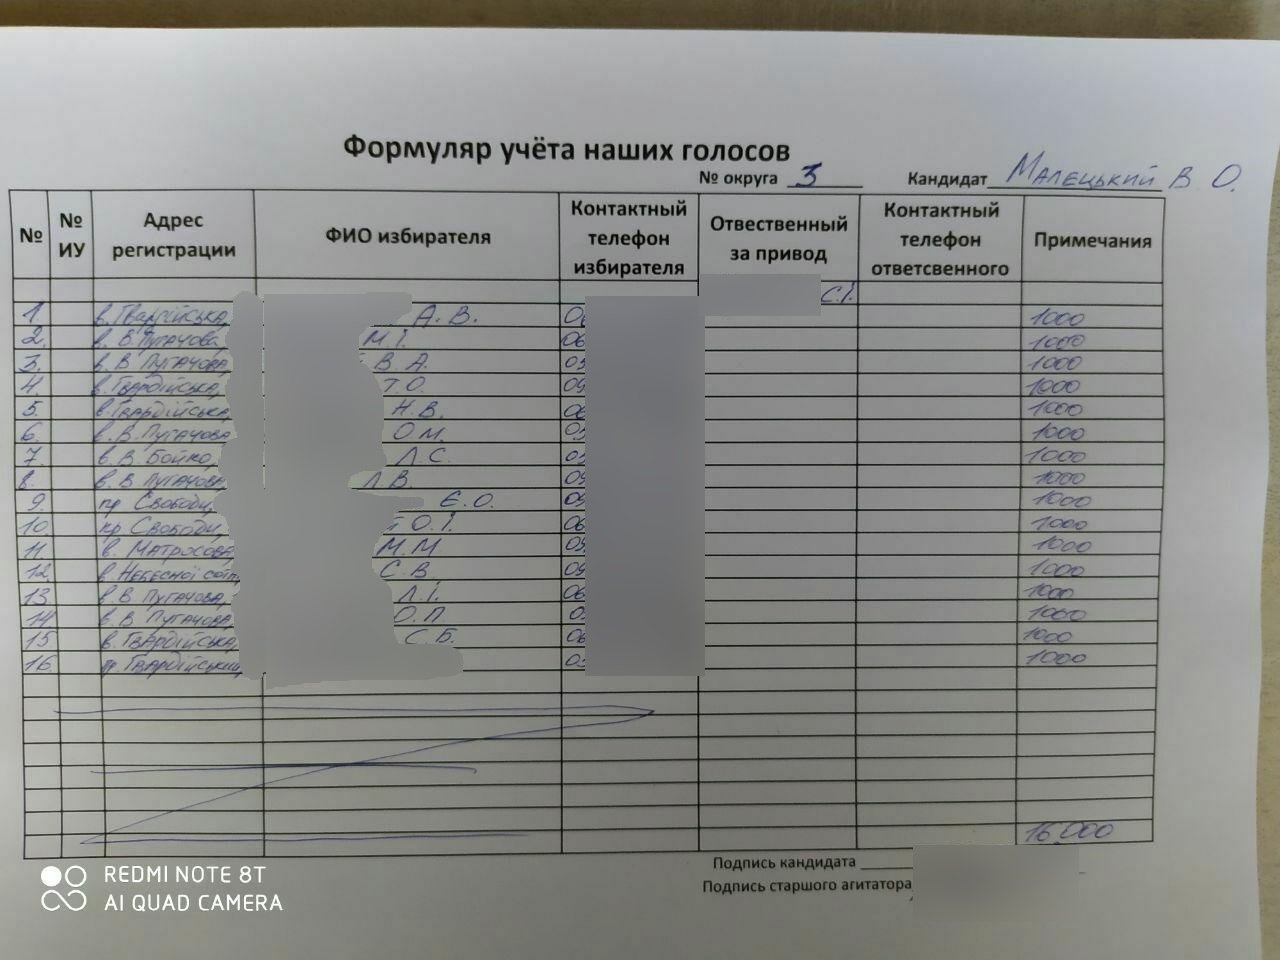 Формуляр учёта наших голосов
№ округа 3 Кандидат Малецький В О.
№ № ИУ Адрес регистрации ФИО избирателя Контактный телефон избирателя Отвественный за привод Контактный телефон ответсвенного Примечания
С.І.
1. в. Гвардійська, А. В. 06 1000
2. в. В. Пугачова, М І. 06 1000
3. в. В Пугачова, В. А. 05 1000
4. в. Гвардійська, Т.О. 09 1000
5. в. Гвардійська, Н. В. 06 1000
6. в. В. Пугачова О М. 05 1000
7. в. В Бойко, Л. С. 05 1000
8. в. В Пугачова Л. В. 09 1000
9. пр Свободи, Є. О. 09 1000
10. пр Свободи, О. І. 06 1000
11. в. Матросова, М. М 09 1000
12 в Небесної сотн С. В 09 1000
13. в. В. Пугачова, Л. І. 06 1000
14. в. В Пугачова, О. П. 05 1000
15 в. Гвардійська, С. Б. 06 1000
16. Гвардійський 05 1000
16 000
Подпись кандидата
Подпись старшого агитатора
REDMI NOTE 8T
AI QUAD CAMERA